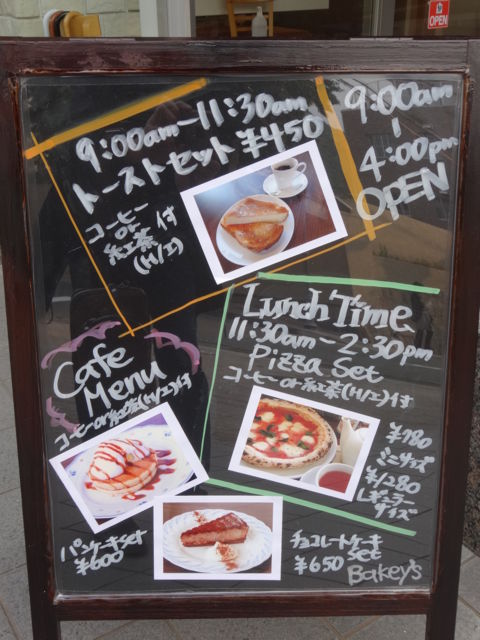 OPEN
9:00am-11:30am
トーストセット ¥450
コーヒー
or
紅茶付
(H/I)
9:00am
-
4:00pm
OPEN
Lunch Time
11:30am-2:30pm
Pizza Set
コーヒーor紅茶(H/I)付
¥780
ミニサイズ
¥1280
レギュラー
サイズ
Cafe
Menu
コーヒーor紅茶(H/I)付
パンケーキset
¥600
チョコレートケーキ
¥650 Set
Bakey's